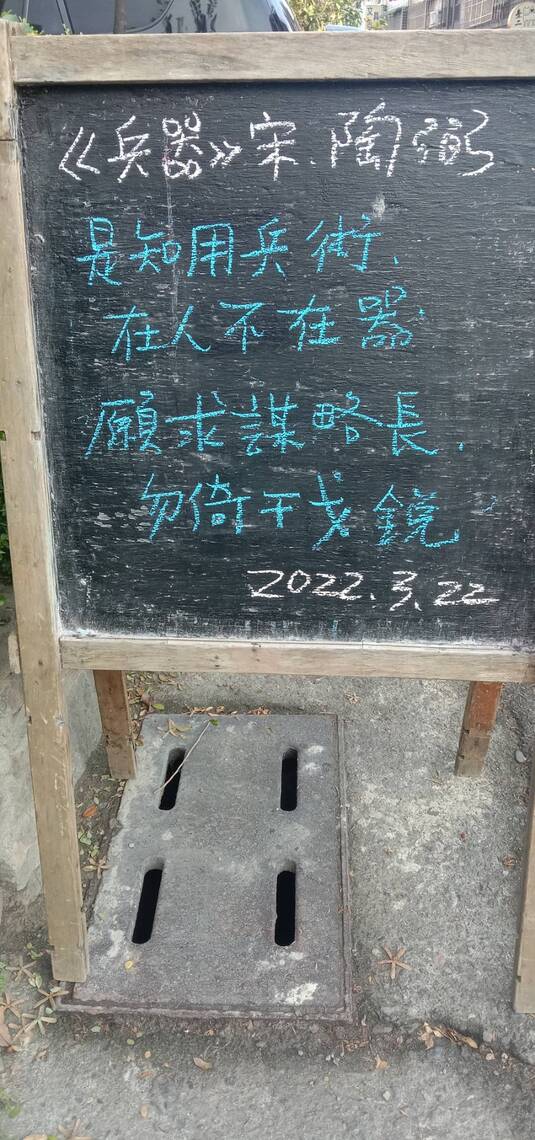 《兵器》宋.陶弼
是知用兵術、
在人不在器.
願求謀略長.
勿倚干戈鋭
2022.3.22